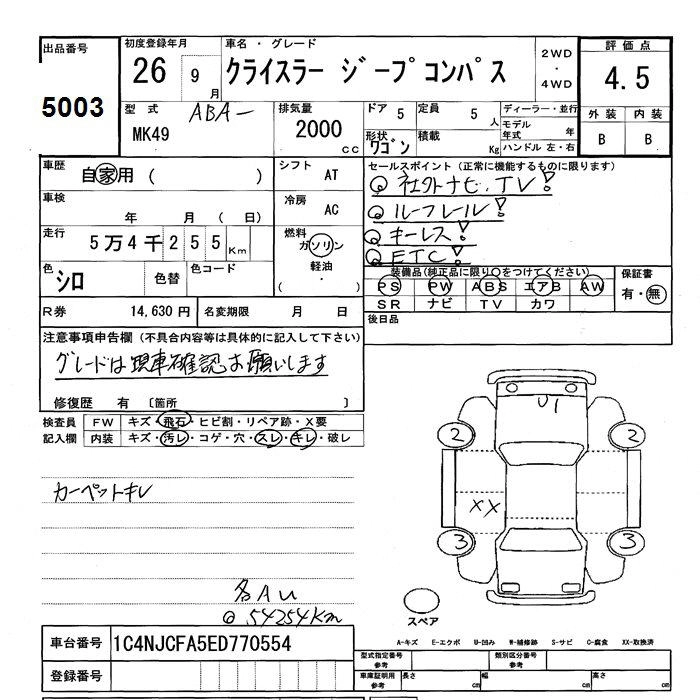 出品番号 初度登録年月 車名・グレード 2WD・4WD 評価点
5003 26 9月 クライスラー ジープコンパス 4.5
型式 ABA- 排気量 ドア 5 定員 5人 ディーラー・並行 外装 内装
MK49 2000cc 形状 ワゴン 積載 Kg モデル年式 年 B B
ハンドル 左・右
車歴 自家用 ( ) シフト AT セールスポイント (正常に機能するものに限ります)
社外ナビ、TV!
車検 年 月 ( 日) 冷房 AC ルーフレール!
走行 5万4千255Km 燃料 ガソリン 軽油・ ( ) キーレス!
ETC!
色 シロ 色替 色コード 装備品(純正品に限り○をつけてください) 保証書
PS PW ABS エアB AW 有・無
SR ナビ TV カワ
R券 14,630円 名変期限 月 日 後日品
注意事項申告欄 (不具合内容等は具体的に記入して下さい)
グレードは現車確認お願いします
修復歴 有 〔箇所 〕
検査員 FW キズ・飛石・ヒビ割・リペア跡・X要
記入欄 内装 キズ・汚レ・コゲ・穴・スレ・キレ・破レ
U1
2 2
カーペットキレ
XX
3 3
各AU
54254Km
スペア
A-キズ E-エクボ U-凹み W-補修跡 S-サビ C-腐食 XX-取換済
車台番号 1C4NJCFA5ED770554 型式指定番号 参考 類別区分番号 参考
登録番号 車庫証明用 参考 長さ cm 幅 cm 高さ cm